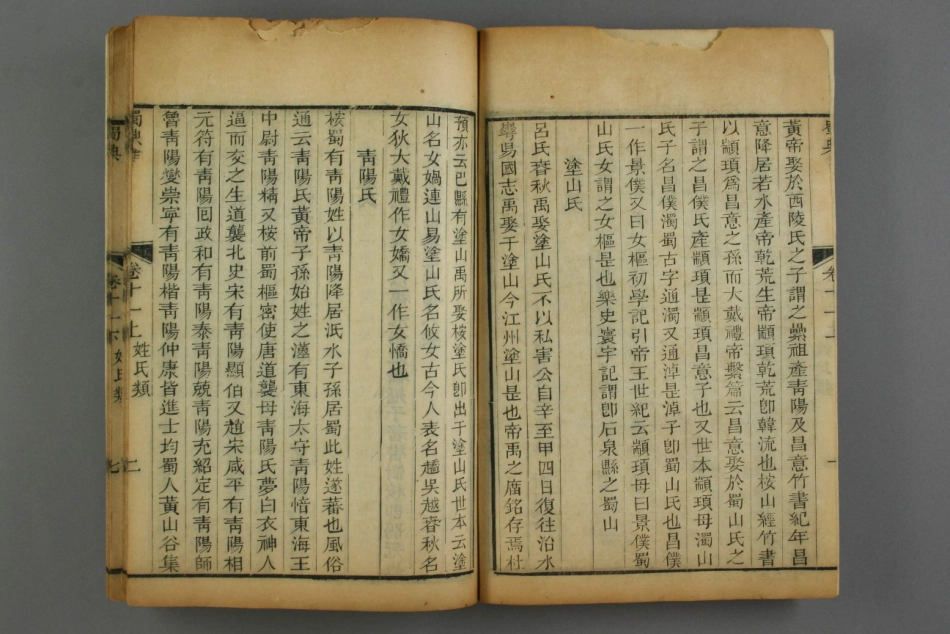 蜀典
卷十一上
黃帝娶於西陵氏之子謂之纍祖產靑陽及昌意竹書紀年昌
意降居若水產帝乾荒生帝顓頊乾荒卽韓流也桉山經竹書
以顓頊爲昌意之孫而大戴禮帝繫篇云昌意娶於蜀山氏之
子謂之昌僕氏產顓頊是顓頊昌意子也又世本顓頊母濁山
氏子名昌僕濁蜀古字通濁又通淖是淖子卽蜀山氏也昌僕
一作景僕又曰女樞初學記引帝王世紀云顓頊母曰景僕蜀
山氏女謂之女樞是也樂史寰宇記謂卽石泉縣之蜀山
塗山氏
呂氏春秋禹娶塗山氏不以私害公自辛至甲四日復往治水
華昜國志禹娶于塗山今江州塗山是也帝禹之廟銘存焉杜
預亦云巴縣有塗山禹所娶桉塗氏卽出于塗山氏世本云塗
山名女媧連山易塗山氏名攸女古今人表名趫吳越春秋名
女狄大戴禮作女嬌又一作女憍也
靑陽氏
桉蜀有靑陽姓以靑陽降居泜水子孫居蜀此姓遂蕃也風俗
通云靑陽氏黃帝子孫始姓之漢有東海太守靑陽愔東海王
中尉靑陽精又桉前蜀樞密使唐道襲母靑陽氏夢白衣神人
逼而交之生道襲北史宋有靑陽顯伯又趙宋咸平有靑陽相
元符有靑陽囘政和有靑陽泰靑陽兢靑陽充紹定有靑陽師
曾靑陽燮崇寧有靑陽楷靑陽仲康皆進士均蜀人黃山谷集
蜀典
卷十一上 姓氏類
二
蜀典
卷十一下 姓氏類
七